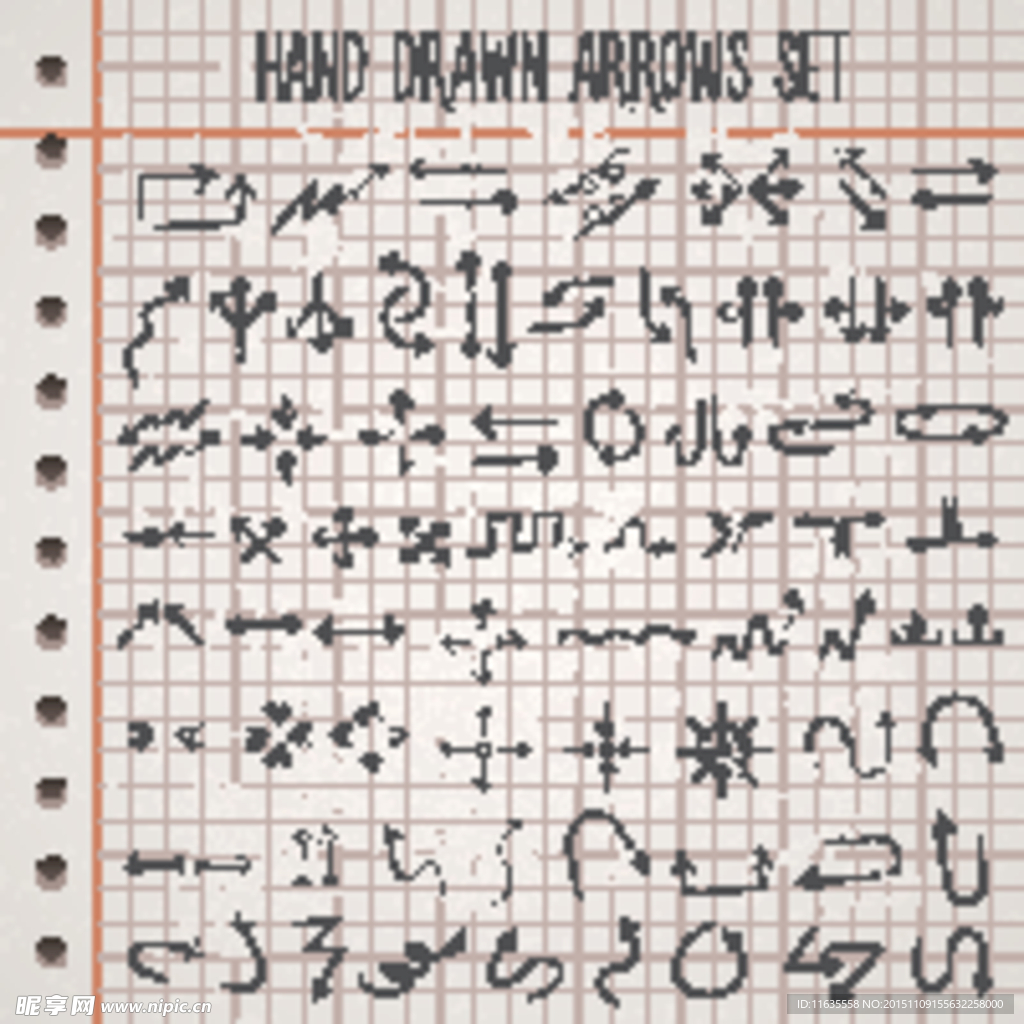 HAND DRAWN ARROWS SET
昵享网 www.nipic.cn
ID:11635558 NO:20151109155632258000